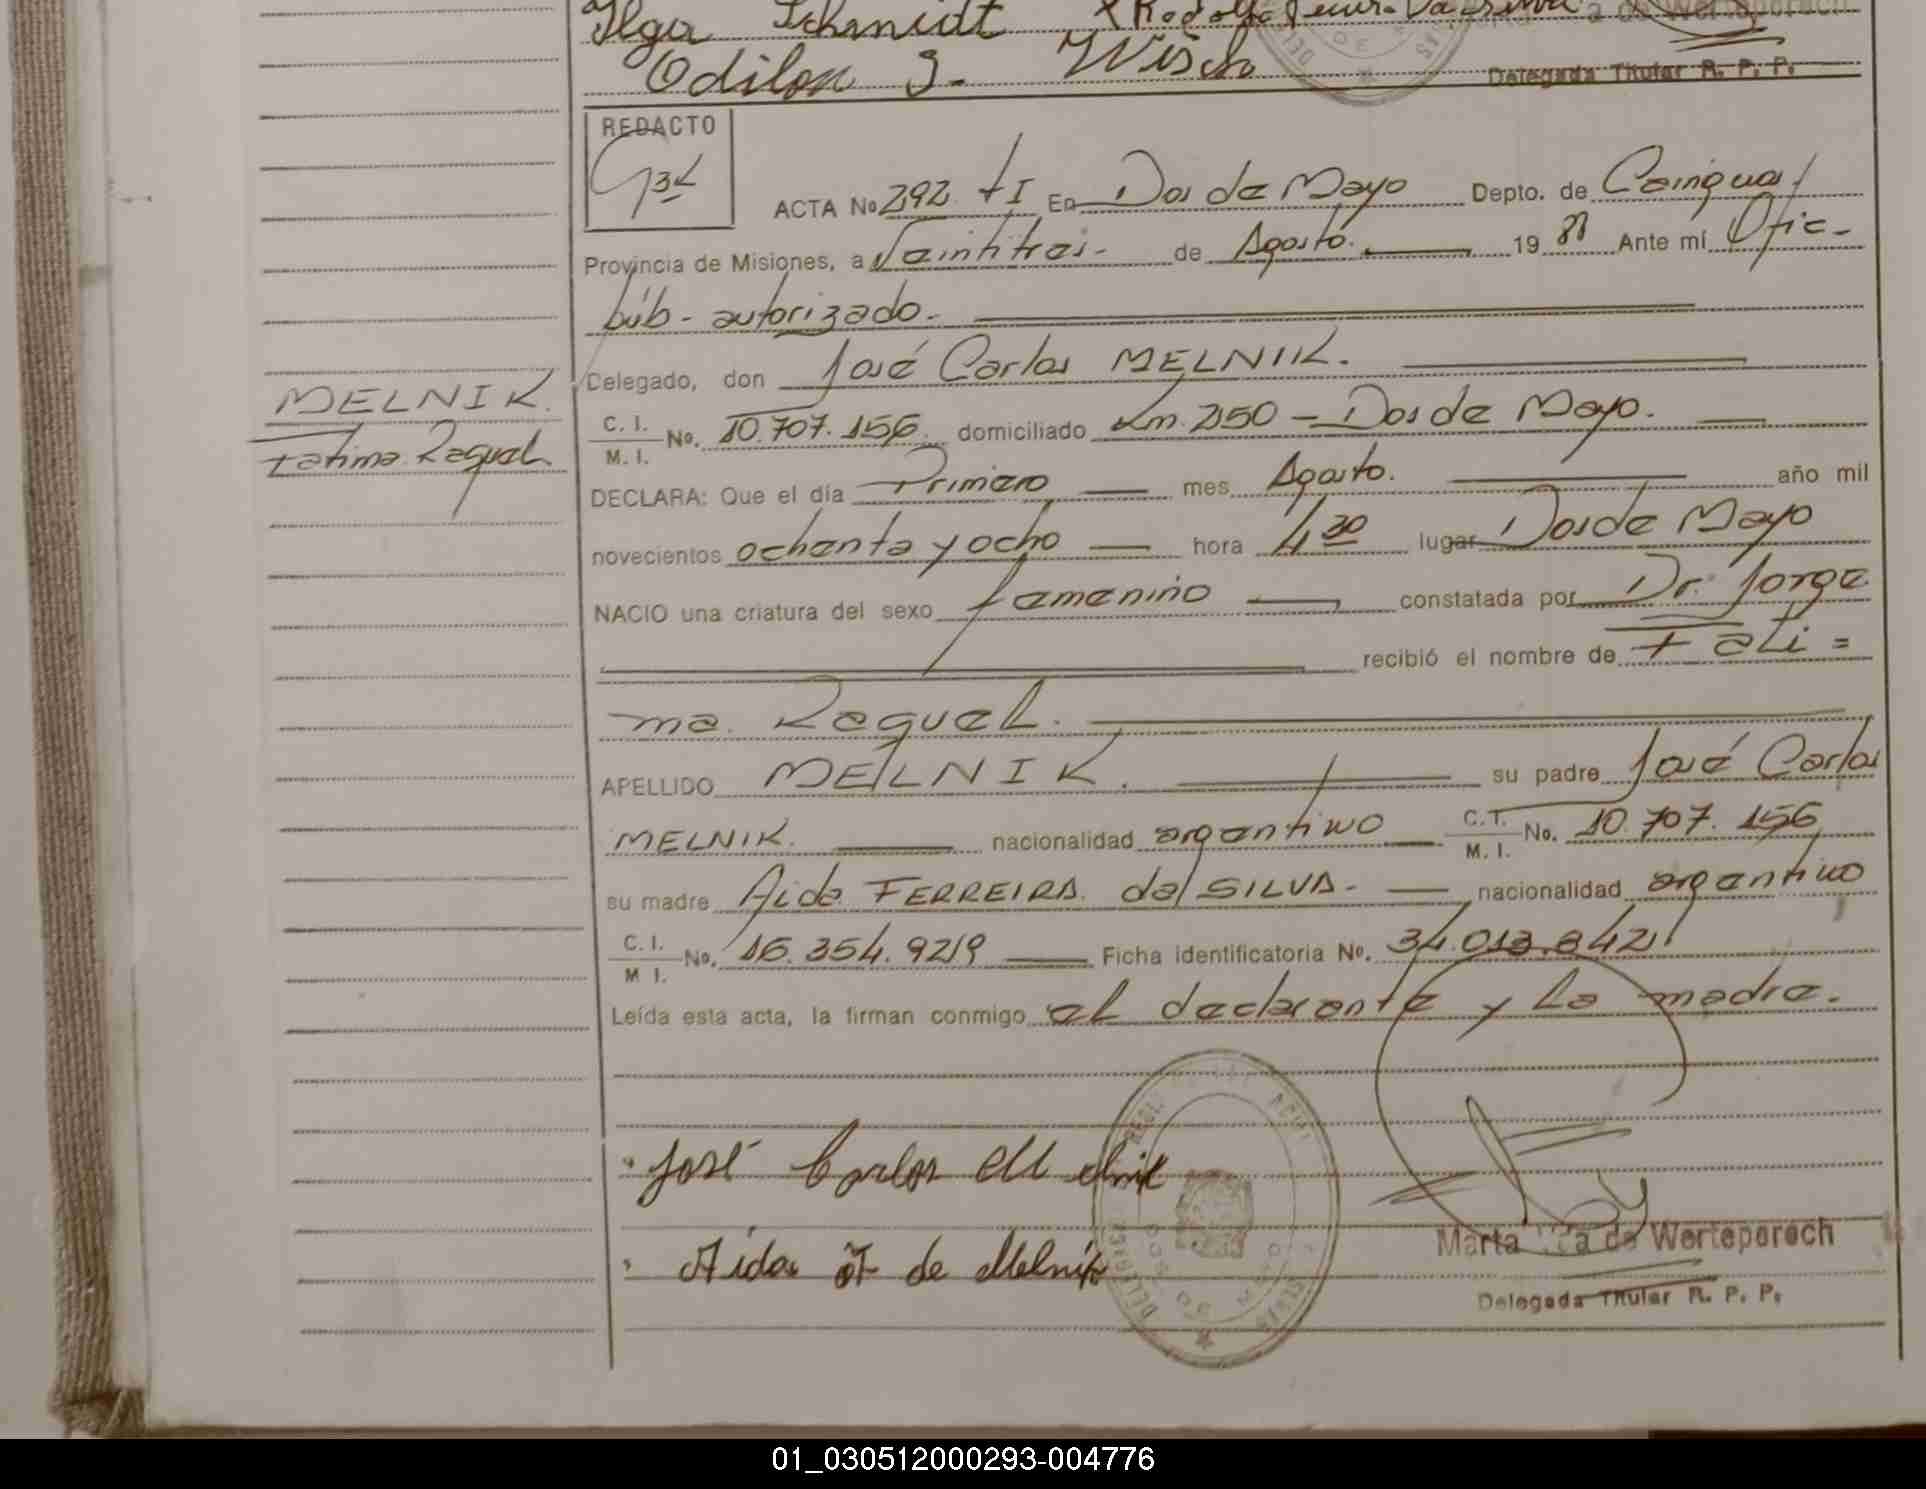 Ilga Schmidt
Odilon J. Wisch
Delegada Titular R. P. P.
REDACTO
ACTA No 292 tI En Dos de Mayo Depto. de Cainguas
Provincia de Misiones, a Veintitres - de Agosto. 19 88 Ante mí Ofic-
púb - autorizado -
Delegado, don José Carlos MELNIK.
MELNIK.
Fatima Raquel
C. I.
M. I. No. 10.707.156. domiciliado Km. 250 - Dos de Mayo.
DECLARA: Que el día Primero mes Agosto. año mil
novecientos ochenta y ocho hora 4 30 lugar Dos de Mayo
NACIO una criatura del sexo femenino constatada por Dr. Jorge
recibió el nombre de Fati =
ma. Raquel.
APELLIDO MELNIK. su padre José Carlos
MELNIK. nacionalidad argentino C. I.
M. I. No. 10.707.156
su madre Aida FERREIRA da SILVA - nacionalidad argentino
C. I.
M I. No. 16.354.929 Ficha identificatoria No. 34.013.842
Leída esta acta, la firman conmigo el declarante y la madre.
José Carlos Melnik
Aida F de Melnik
Marta de Werteperech
Delegada Titular R. P. P.
01_030512000293-004776